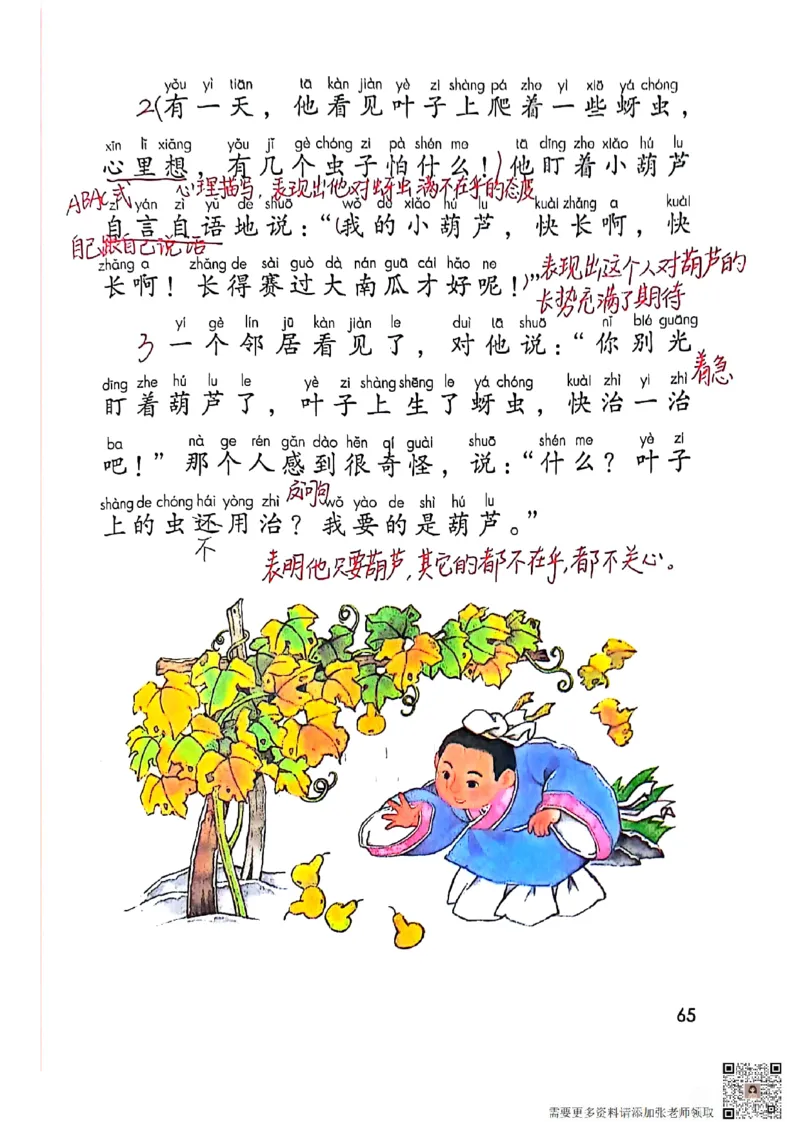 yǒu yì tiān tā kàn jiàn yè zi shàng pá zhe yì xiē yá chóng
2(有一天，他看见叶子上爬着一些蚜虫，
xīn lǐ xiǎng yǒu jǐ gè chóng zi pà shén me tā dīng zhe xiǎo hú lu
心里想，有几个虫子怕什么！)他盯着小葫芦
ABAC式 心理描写，表现出他对蚜虫满不在乎的态度
zì yán zì yǔ de shuō wǒ de xiǎo hú lu kuài zhǎng a kuài
自言自语地说：“(我的小葫芦，快长啊，快
自己跟自己说话
zhǎng a zhǎng de sài guò dà nán guā cái hǎo ne
长啊！长得赛过大南瓜才好呢！)”
表现出这个人对葫芦的
长势充满了期待
yí gè lín jū kàn jiàn le duì tā shuō nǐ bié guāng
3 一个邻居看见了，对他说：“你别光
着急
dīng zhe hú lu le yè zi shàng shēng le yá chóng kuài zhì yi zhì
盯着葫芦了，叶子上生了蚜虫，快治一治
ba nà ge rén gǎn dào hěn qí guài shuō shén me yè zi
吧！”那个人感到很奇怪，说：“什么？叶子
反问
shàng de chóng hái yòng zhì wǒ yào de shì hú lu
上的虫还用治？我要的是葫芦。”
不
表明他只要葫芦，其它的都不在乎，都不关心。
65
需要更多资料请添加张老师领取